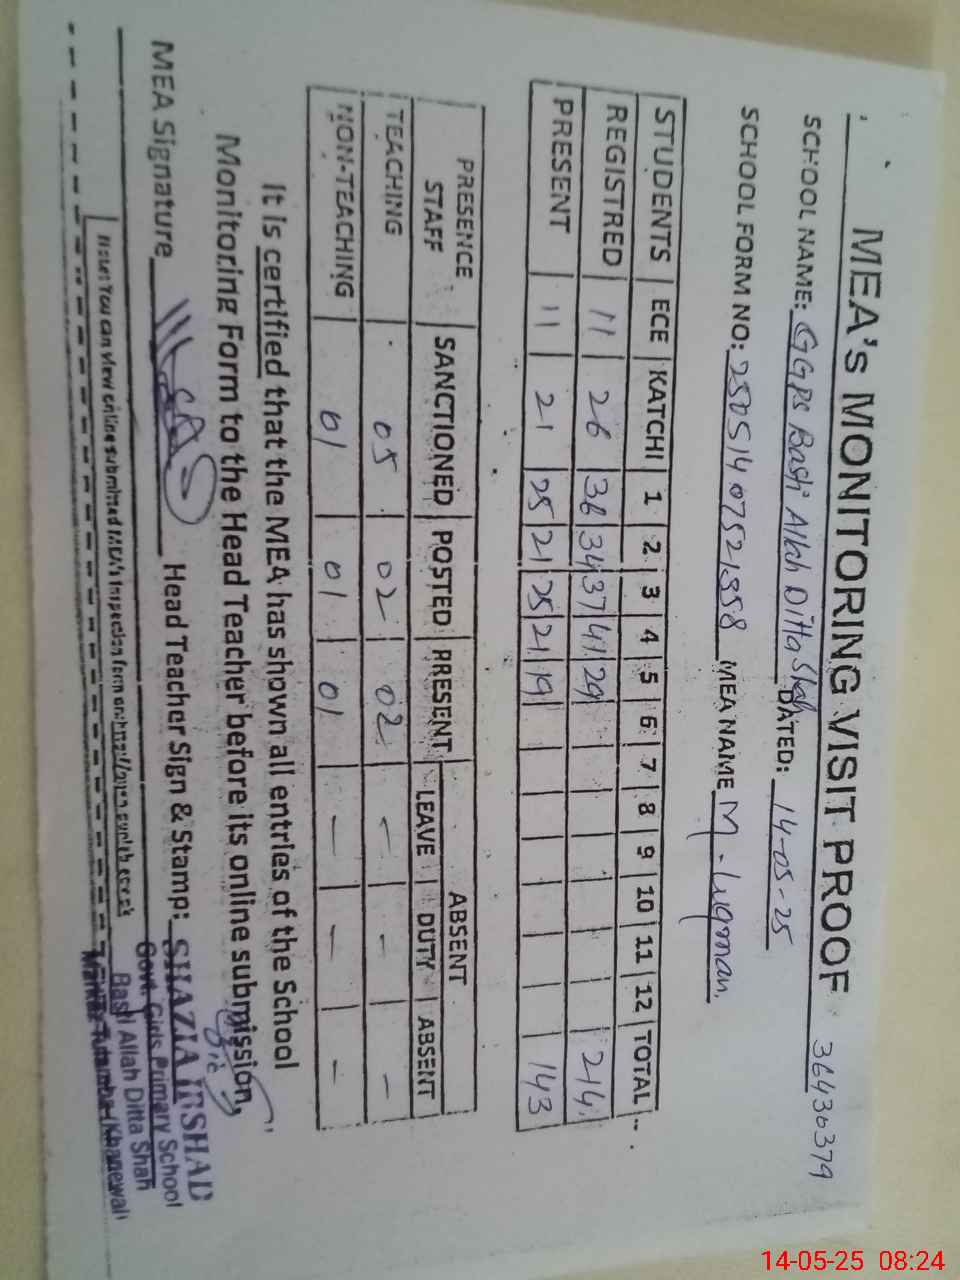 MEA's MONITORING VISIT PROOF 36436379
SCHOOL NAME: GGPS Basti Allah Ditta Shah DATED: 14-05-25
SCHOOL FORM NO: MEA NAME M. Luqman.
STUDENTS ECE KATCHI 1 2 3 4 5 6 7 8 9 10 11 12 TOTAL
REGISTRED 11 26 36 34 37 41 29 214
PRESENT 11 21 25 21 25 21 19 143
PRESENCE STAFF SANCTIONED POSTED PRESENT ABSENT
LEAVE DUTY ABSENT
TEACHING 05 02 02 - - -
NON-TEACHING 01 01 01 - - -
It is certified that the MEA has shown all entries of the School
Monitoring Form to the Head Teacher before its online submission.
MEA Signature Head Teacher Sign & Stamp:
SHAZIA IRSHAD
Govt. Girls Primary School
Basti Allah Ditta Shah
(Khanewal)
You can view online submitted MEA's inspection form on
14-05-25 08:24